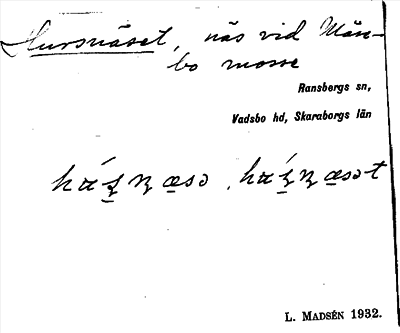 Hursnäset, näs vid Mån-
bo mosse
Ransbergs sn,
Vadsbo hd, Skaraborgs län
L. MADSÉN 1932.